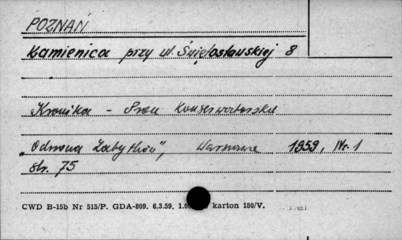 POZNAŃ
Kamienica przy ul. Świętosławskiej 8
Kronika - Prace Konserwatorskie
„Ochrona Zabytków", Warszawa 1959, Nr. 1
str. 75
CWD B-15b Nr 515/P. GDA-809. 6.3.59. karton 180/V.